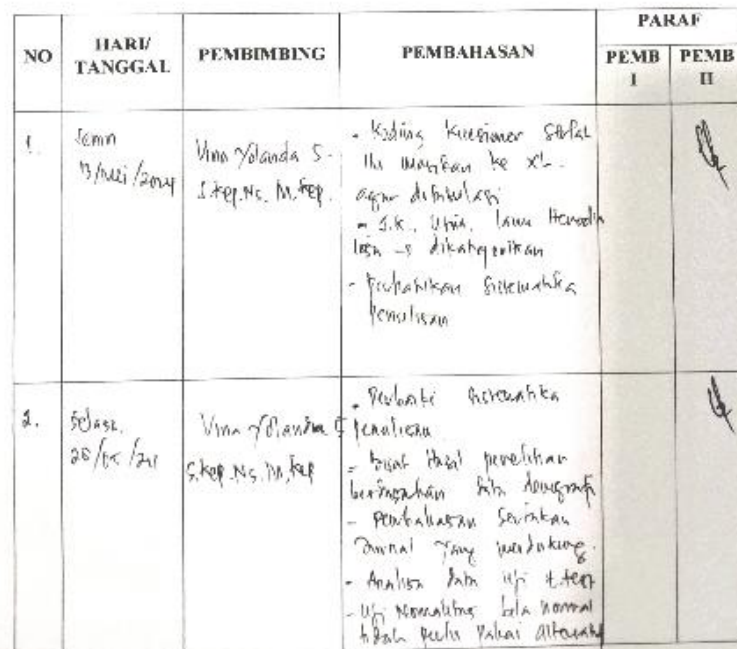 NO
HARI/
TANGGAL
PEMBIMBING
PEMBAHASAN
PARAF
PEMB
I
PEMB
II
1.
Senin
13/Mei/2024
Vina Yolanda S.
S.Kep.Ns. M.Kep.
- Koding Kuesioner Setelah
itu masukan ke
agar ditabulasi
- J.K, Usia, lama Hemodia
lisa → dikategorikan
- Perhatikan Sistematika
Penulisan
2.
Selasa.
28/05/24
Vina Yolanda S
S.Kep.Ns.M.Kep
- Perbaiki sistematika
penulisan
- Buat Hasil penelitian
data demografi
- Pembahasan Sertakan
Jurnal yang mendukung.
- Analisa data uji t.test
- Uji Normalitas bila normal
tidak perlu pakai alternatif